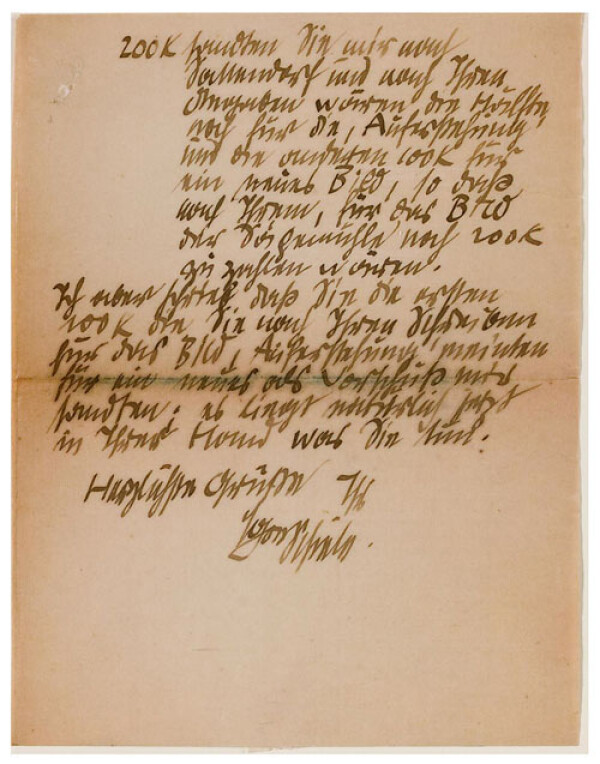 200K sandten Sie mir nach
Sallendorf und nach Ihren
Angaben wären die Hälfte,
noch für die, Auferstehung'
und die anderen 100K für
ein neues Bild, so daß
nach Ihrem, für das Bild
der Sägemühle noch 200K
zu zahlen wären.
Ich aber schrieb daß Sie die ersten
100K die Sie nach Ihren Schreiben
für das Bild, Auferstehung' meinten
für ein neues als Vorschuß mir
sandten; es liegt natürlich jetzt
in Ihrer Hand was Sie tun.
Herzlichste Grüße Ihr
Egon Schiele.